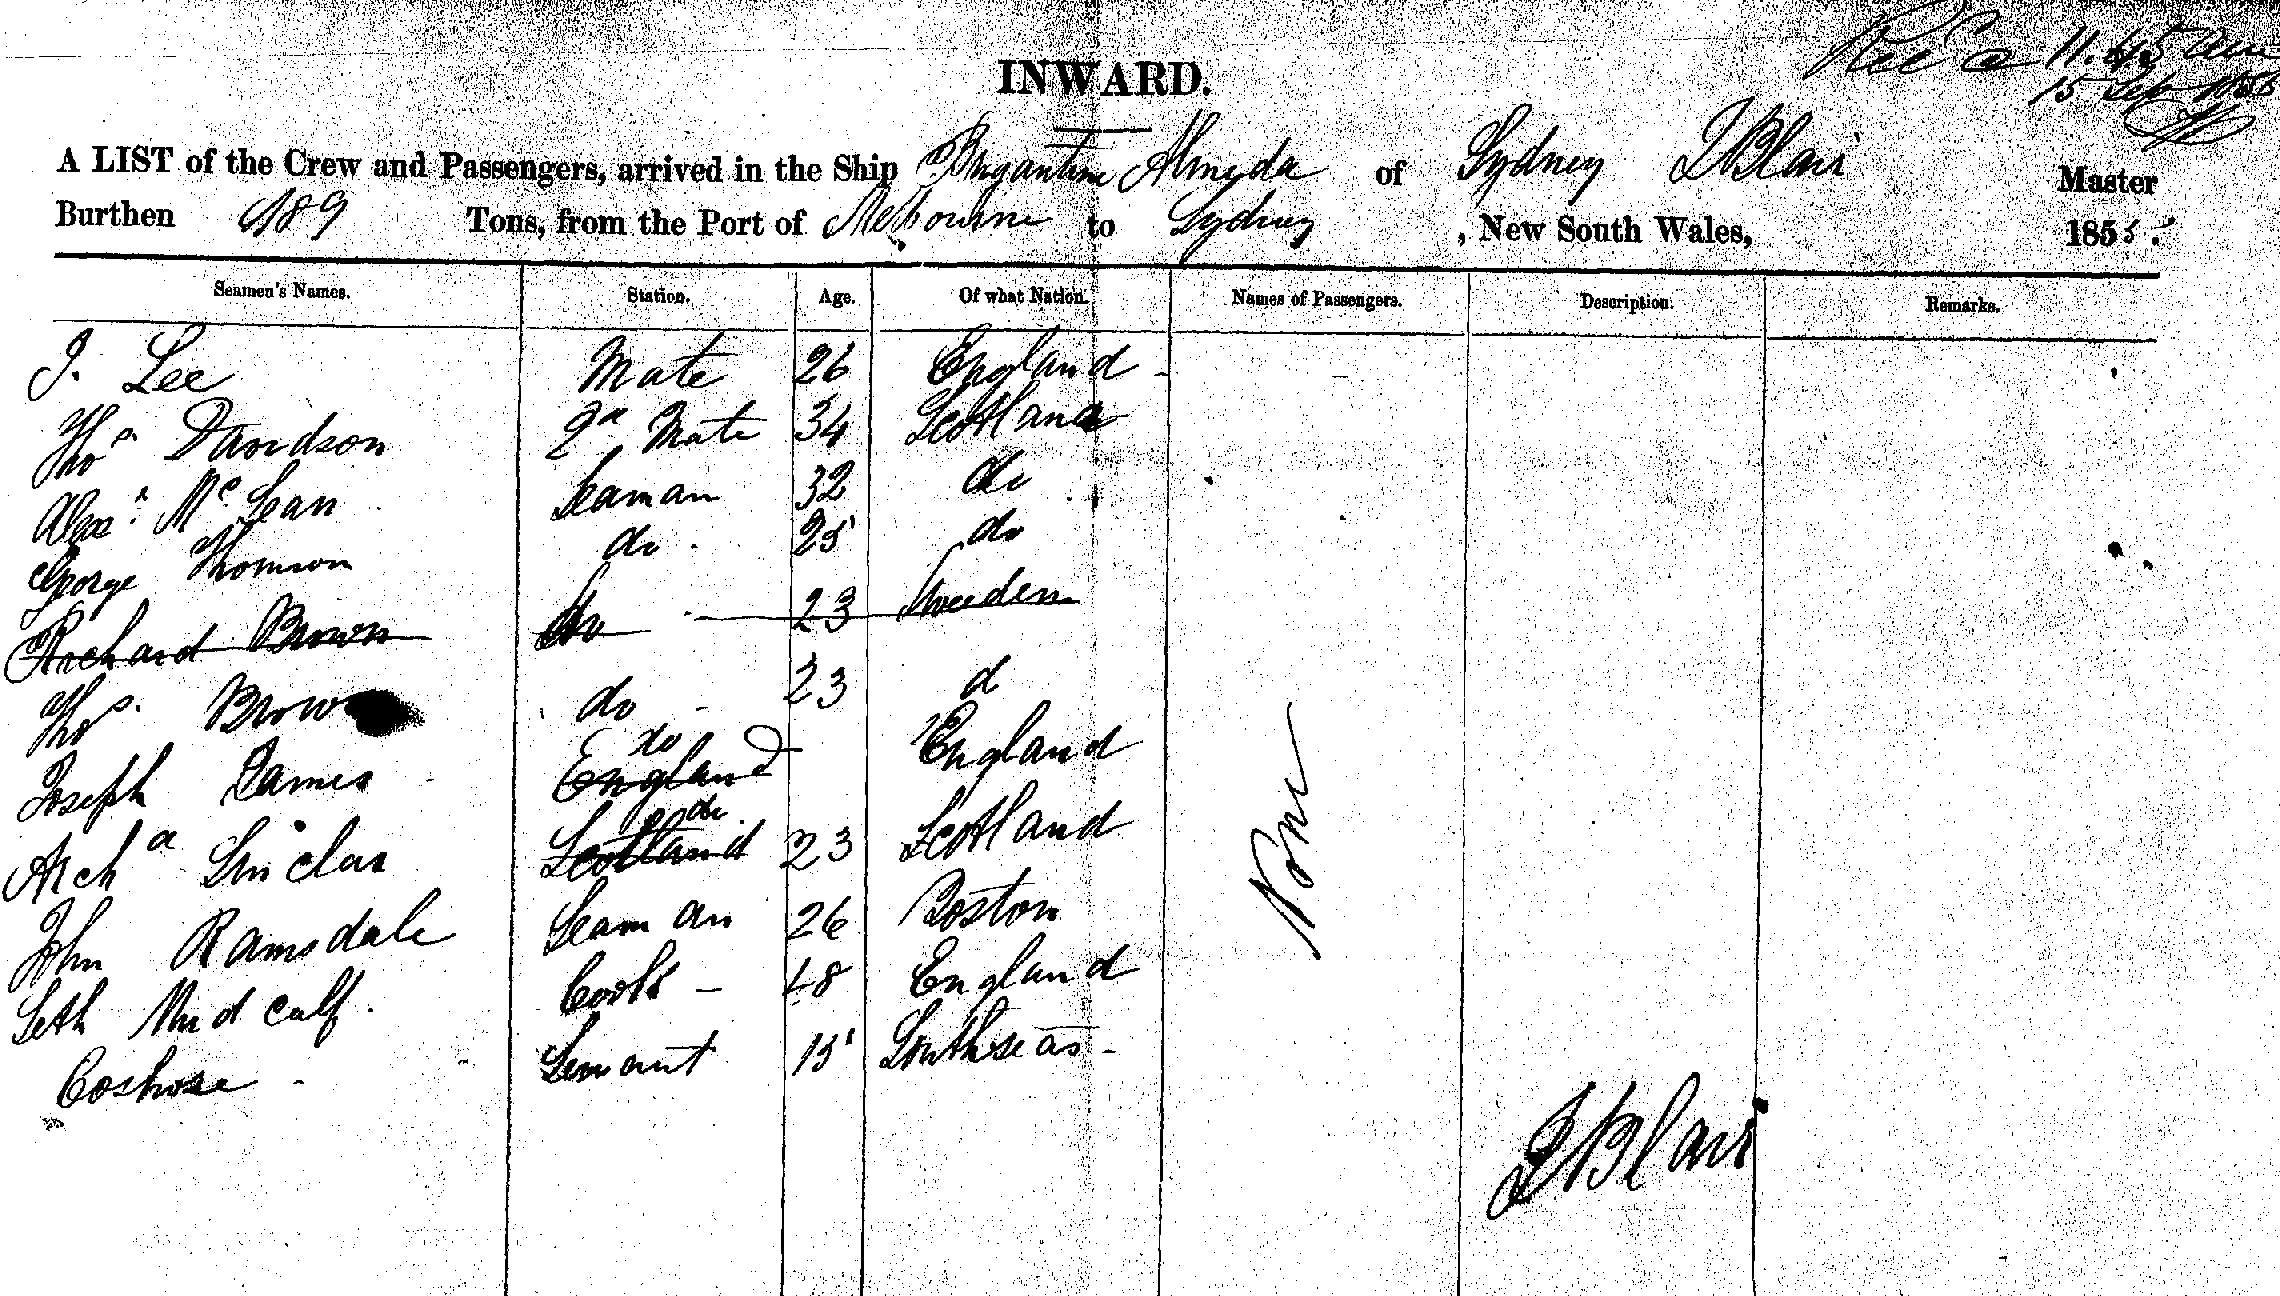 Recd 11.45 am
15 Sep 1855
INWARD.
A LIST of the Crew and Passengers, arrived in the Ship Brigantine Almeda of Sydney J Blair Master
Burthen 189 Tons, from the Port of Melbourne to Sydney , New South Wales, 1855.
Seamen's Names. Station. Age. Of what Nation. Names of Passengers. Description. Remarks.
J. Lee Mate 26 England -
Thos Davidson 2d Mate 34 Scotland
Alexr. McLean Seaman 32 do
George Thomson do 25 do
Richard Brown do 23 Sweden
Thos. Brown do 23 d
Joseph James England do England
Archd Sinclar Scotland do 23 Scotland
John Ramsdale Seaman 26 Boston
Seth Mudcalf. Cook - 48 England
Servant 15 Southseas -
None
J Blair